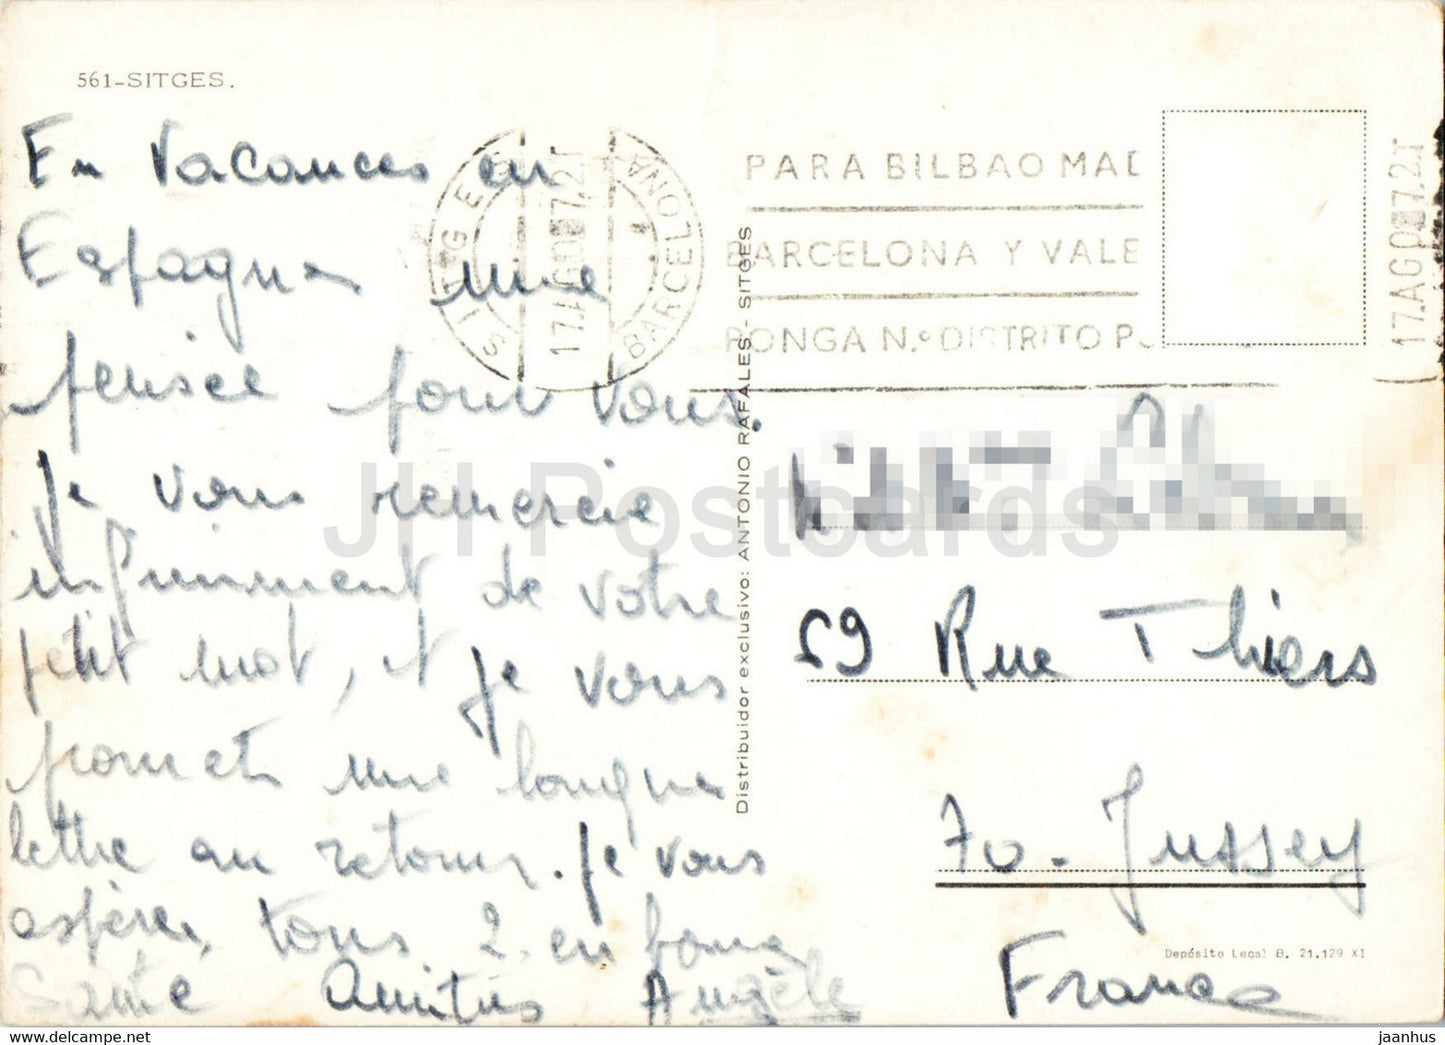 561-SITGES.
En Vacances en
Espagne une
pensée pour vous.
Je vous remercie
infiniment de votre
petit mot, et je vous
promets une longue
lettre au retour. Je vous
espère, tous 2. en bonne
Santé Amitiés Angèle
SITGES
17.AGO 72
BARCELONA
PARA BILBAO MAD
BARCELONA Y VALE
PONGA N.º DISTRITO P
17.AGO 72
Distribuidor exclusivo: ANTONIO RAFALES - SITGES
59 Rue Thiers
70. Jussey
France
Depósito Legal B. 21.129 XI
JH Postcards
hip.com
jaanhus